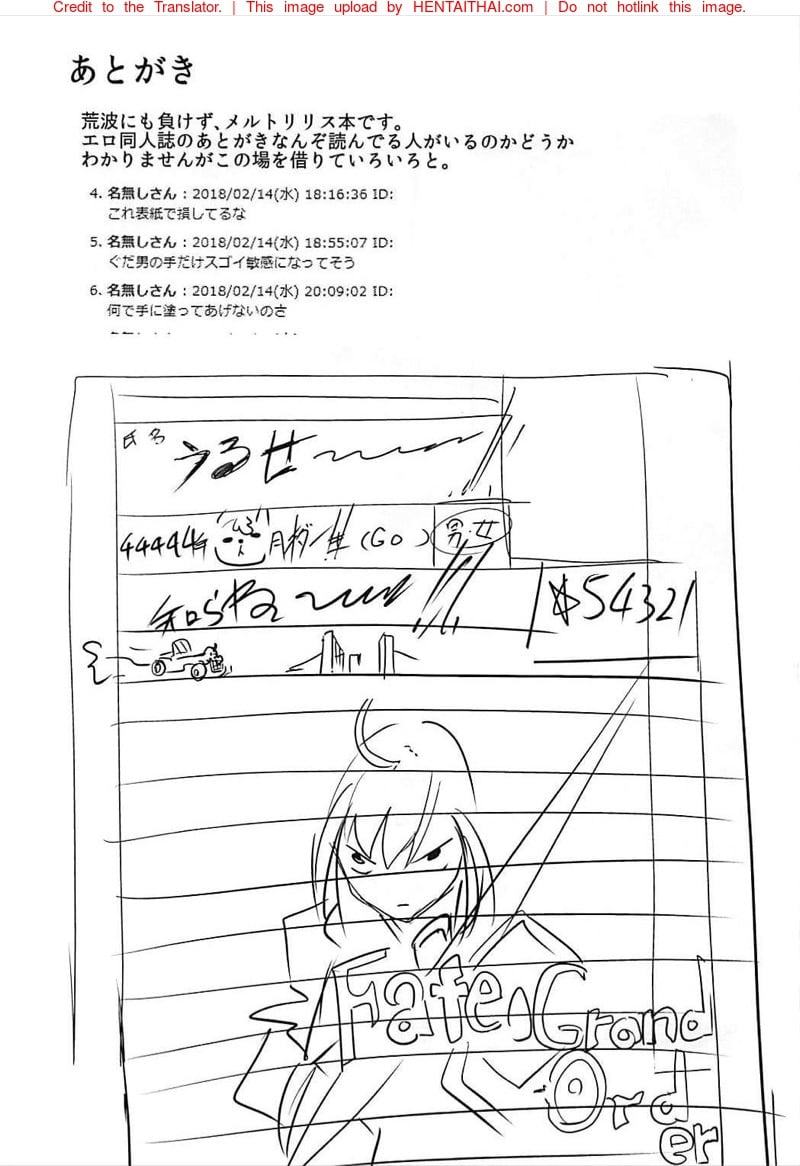 Credit to the Translator. | This image upload by HENTAITHAI.com | Do not hotlink this image.
あとがき
荒波にも負けず、メルトリリス本です。
エロ同人誌のあとがきなんぞ読んでる人がいるのかどうか
わかりませんがこの場を借りていろいろと。
4. 名無しさん : 2018/02/14(水) 18:16:36 ID:
これ表紙で損してるな
5. 名無しさん : 2018/02/14(水) 18:55:07 ID:
ぐだ男の手だけスゴイ敏感になってそう
6. 名無しさん : 2018/02/14(水) 20:09:02 ID:
何で手に塗ってあげないのさ
氏名
うるせ
44444年
月
(Go)
男・女
知らねェ
54321
Fate
Grand
Order